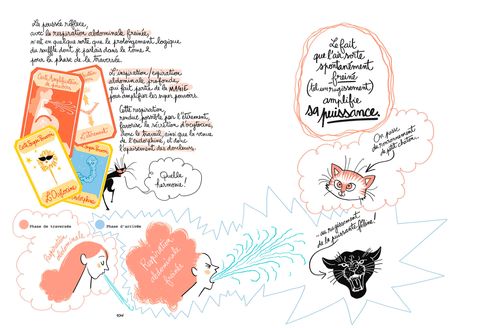 La poussée réflexe,
avec la respiration abdominale freinée,
n'est en quelque sorte que le prolongement logique
du souffle dont je parlais dans le tome 2
pour la phase de la traversée.
L'inspiration/expiration
abdominale profonde
qui fait partie de la MAGIE
pour amplifier les super pouvoirs.
Cette respiration,
rendue possible par l'étirement,
favorise la sécrétion d'ocytocine,
donc le travail, ainsi que la venue
de l'endorphine, et donc
l'apaisement des douleurs.
Carte Amplification
de pouvoirs
L'étirement
Carte Super Pouvoir
L'Ocytocine
Quelle
harmonie!
Le fait
que l'air sorte
spontanément
freiné
(et en rugissement)
amplifie
sa puissance.
On passe
du ronronnement
de petit chaton...
...au rugissement
de la puissante féline!
Phase de traversée
Phase d'arrivée
Respiration
abdominale
Respiration
abdominale
freinée